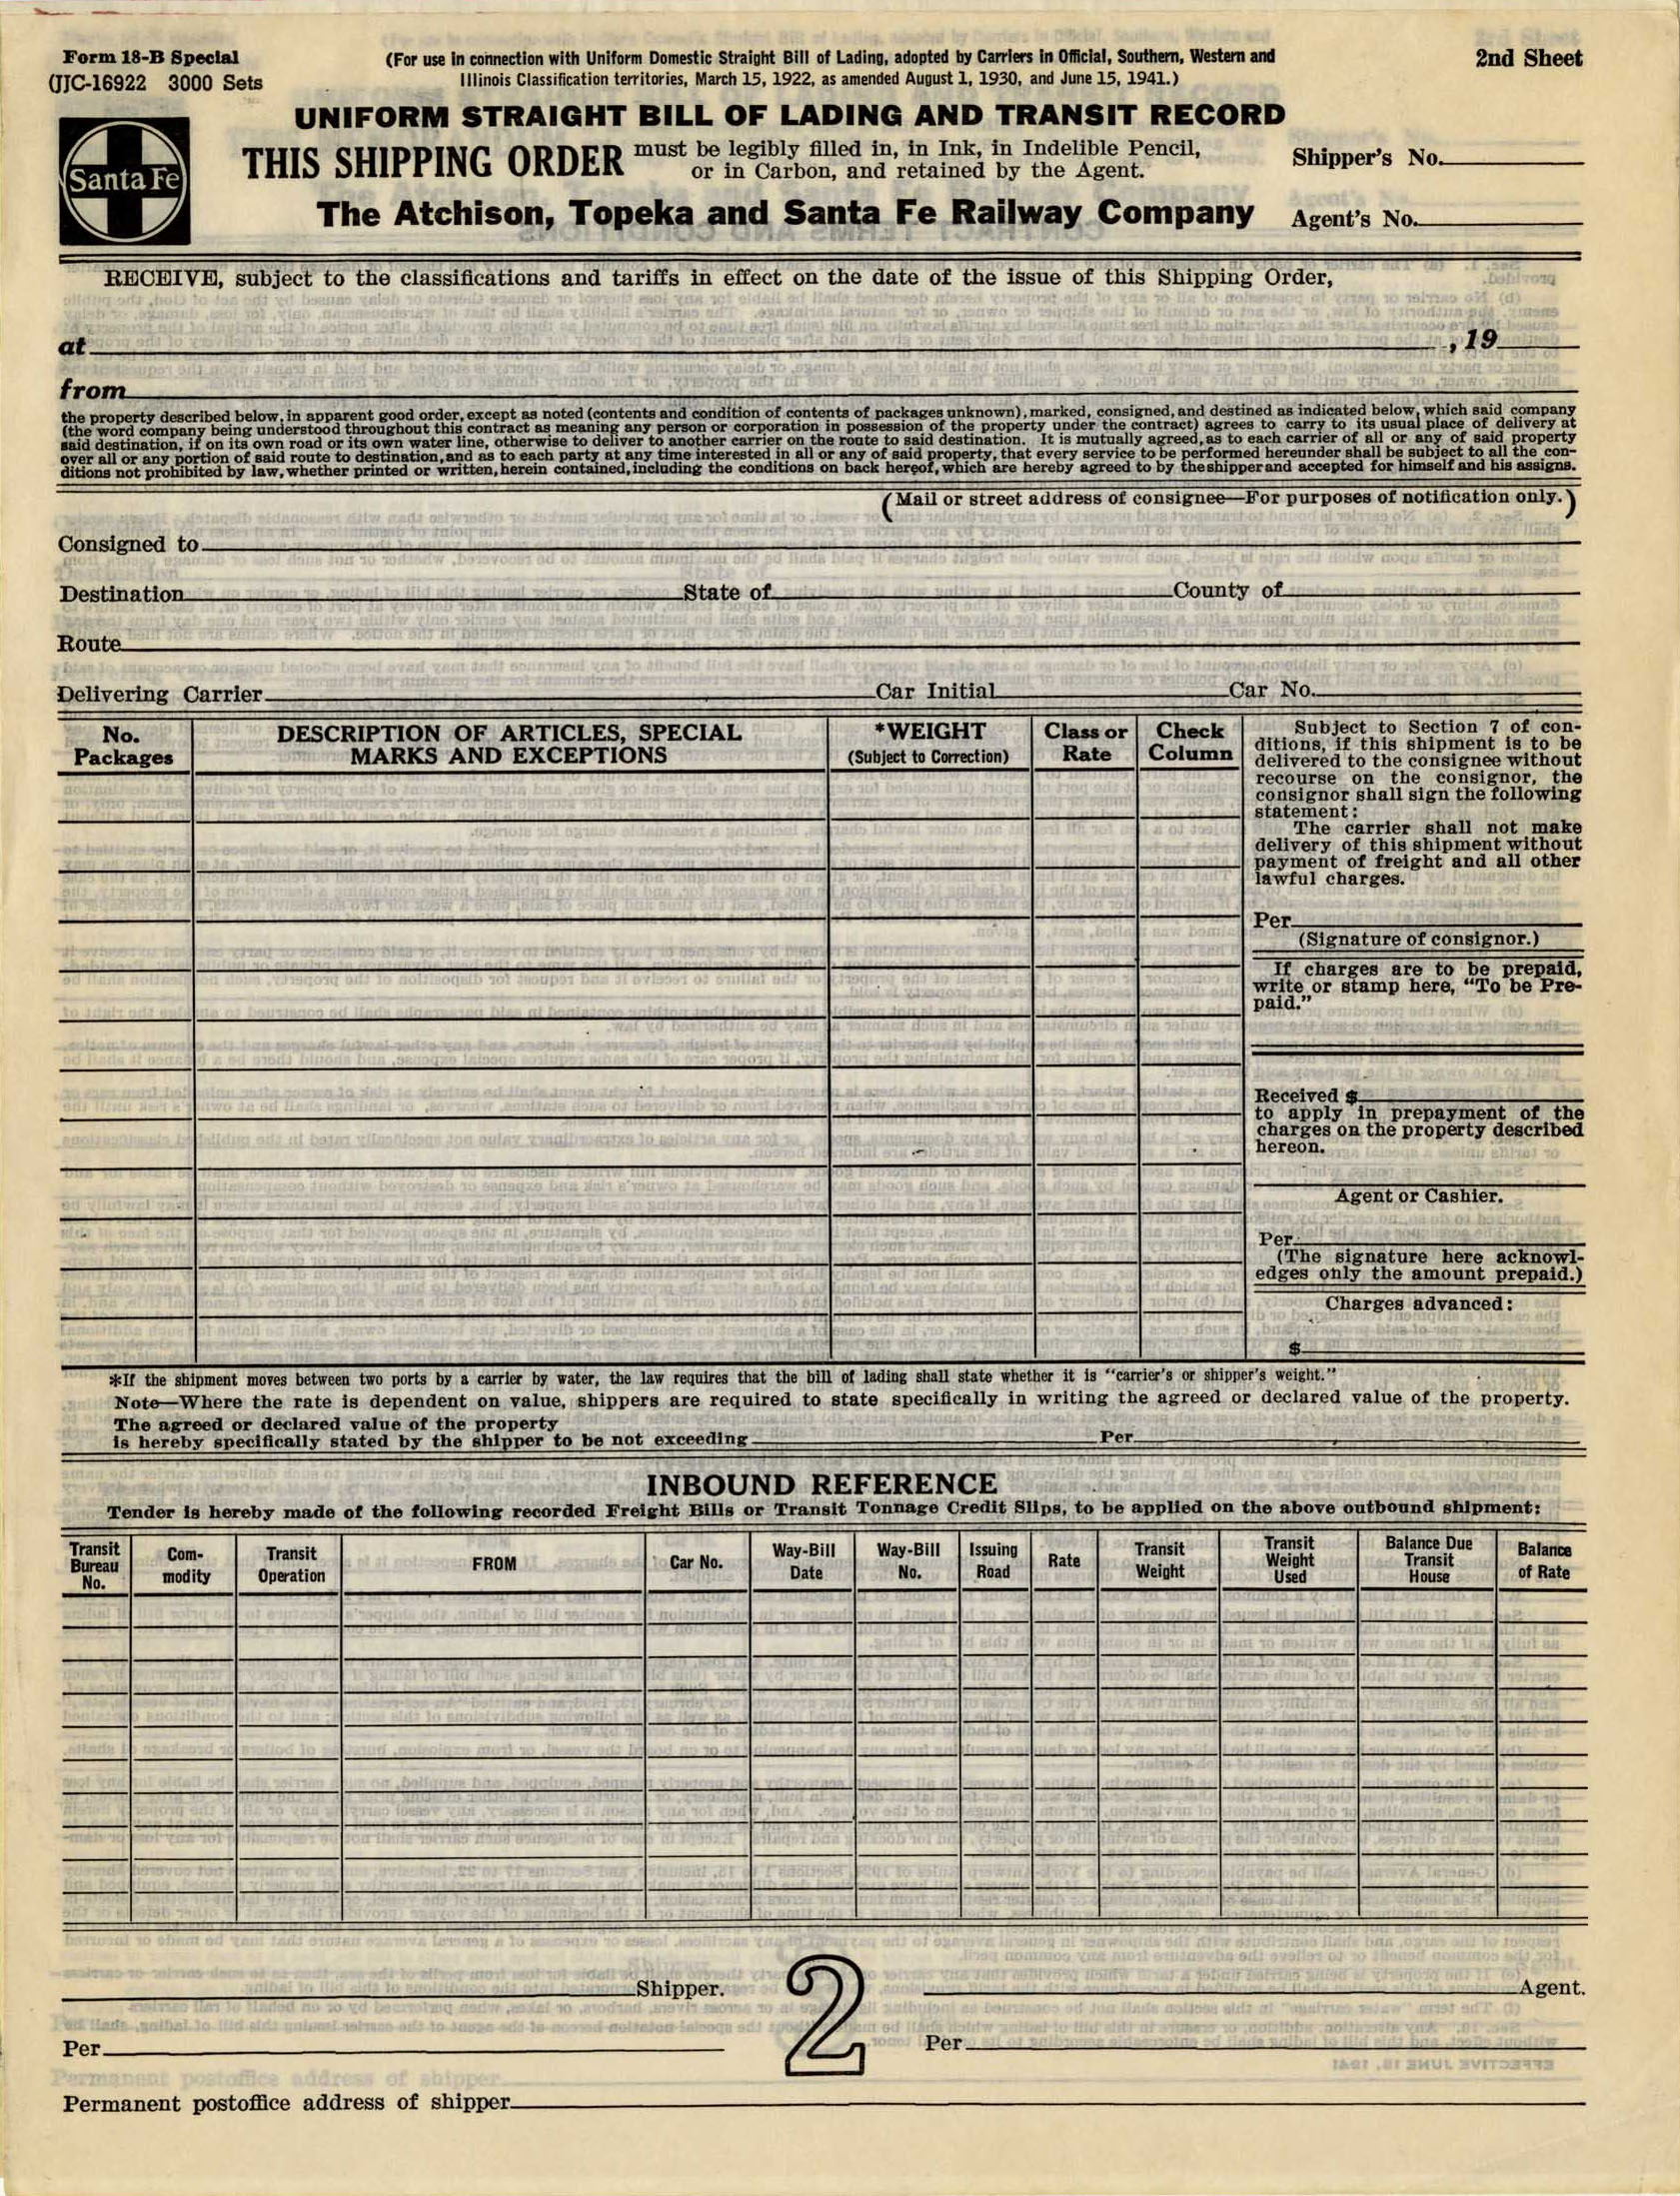 Form 18-B Special
(JJC-16922 3000 Sets
(For use in connection with Uniform Domestic Straight Bill of Lading, adopted by Carriers in Official, Southern, Western and
Illinois Classification territories, March 15, 1922, as amended August 1, 1930, and June 15, 1941.)
2nd Sheet
UNIFORM STRAIGHT BILL OF LADING AND TRANSIT RECORD
Santa Fe
THIS SHIPPING ORDER must be legibly filled in, in Ink, in Indelible Pencil,
or in Carbon, and retained by the Agent.
Shipper's No.
The Atchison, Topeka and Santa Fe Railway Company
Agent's No.
RECEIVE, subject to the classifications and tariffs in effect on the date of the issue of this Shipping Order,
at , 19
from
the property described below, in apparent good order, except as noted (contents and condition of contents of packages unknown), marked, consigned, and destined as indicated below, which said company
(the word company being understood throughout this contract as meaning any person or corporation in possession of the property under the contract) agrees to carry to its usual place of delivery at
said destination, if on its own road or its own water line, otherwise to deliver to another carrier on the route to said destination. It is mutually agreed, as to each carrier of all or any of said property
over all or any portion of said route to destination, and as to each party at any time interested in all or any of said property, that every service to be performed hereunder shall be subject to all the con-
ditions not prohibited by law, whether printed or written, herein contained, including the conditions on back hereof, which are hereby agreed to by the shipper and accepted for himself and his assigns.
(Mail or street address of consignee—For purposes of notification only.)
Consigned to
Destination State of County of
Route
Delivering Carrier Car Initial Car No.
No.
Packages
DESCRIPTION OF ARTICLES, SPECIAL
MARKS AND EXCEPTIONS
*WEIGHT
(Subject to Correction)
Class or
Rate
Check
Column
Subject to Section 7 of con-
ditions, if this shipment is to be
delivered to the consignee without
recourse on the consignor, the
consignor shall sign the following
statement:
The carrier shall not make
delivery of this shipment without
payment of freight and all other
lawful charges.
Per
(Signature of consignor.)
If charges are to be prepaid,
write or stamp here, “To be Pre-
paid.”
Received $
to apply in prepayment of the
charges on the property described
hereon.
Agent or Cashier.
Per
(The signature here acknowl-
edges only the amount prepaid.)
Charges advanced:
$
*If the shipment moves between two ports by a carrier by water, the law requires that the bill of lading shall state whether it is “carrier's or shipper's weight.”
Note—Where the rate is dependent on value, shippers are required to state specifically in writing the agreed or declared value of the property.
The agreed or declared value of the property
is hereby specifically stated by the shipper to be not exceeding Per
INBOUND REFERENCE
Tender is hereby made of the following recorded Freight Bills or Transit Tonnage Credit Slips, to be applied on the above outbound shipment:
Transit
Bureau
No.
Com-
modity
Transit
Operation
FROM
Car No.
Way-Bill
Date
Way-Bill
No.
Issuing
Road
Rate
Transit
Weight
Transit
Weight
Used
Balance Due
Transit
House
Balance
of Rate
Shipper.
2
Agent.
Per
Per
Permanent postoffice address of shipper